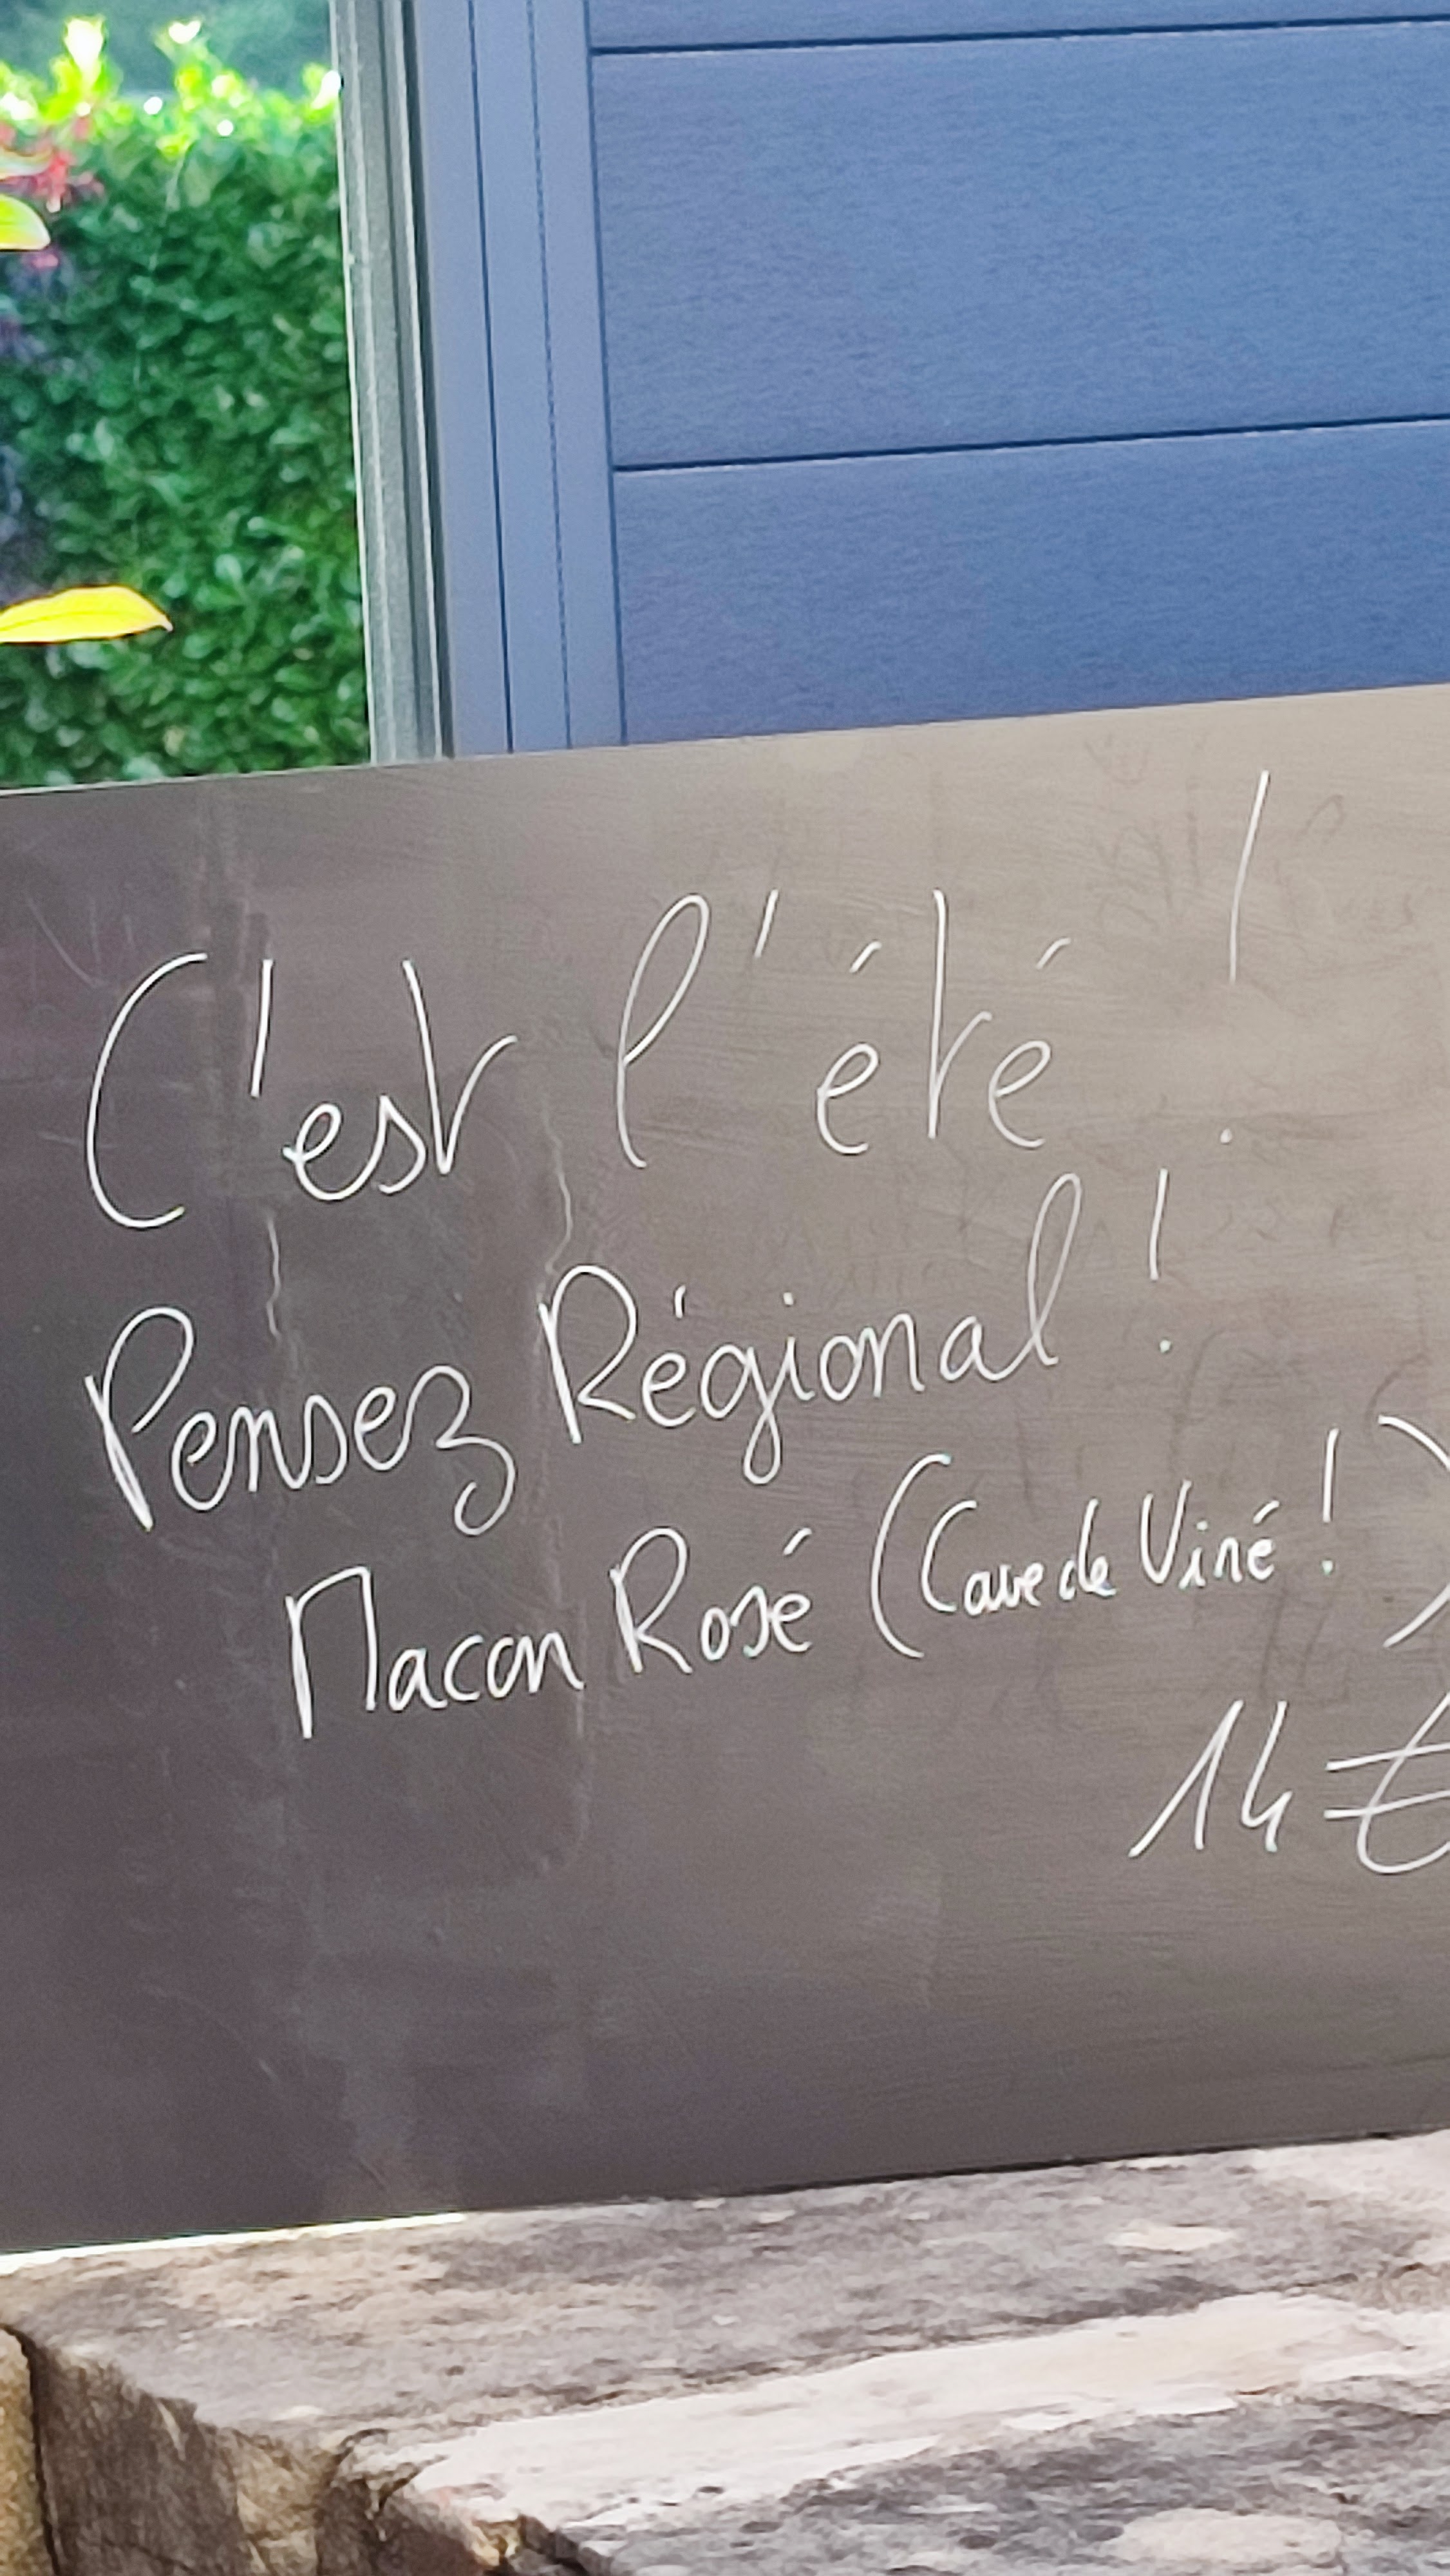 C'est l'été !
Pensez Régional !
Macon Rosé (Cave de Viré !)
14 €